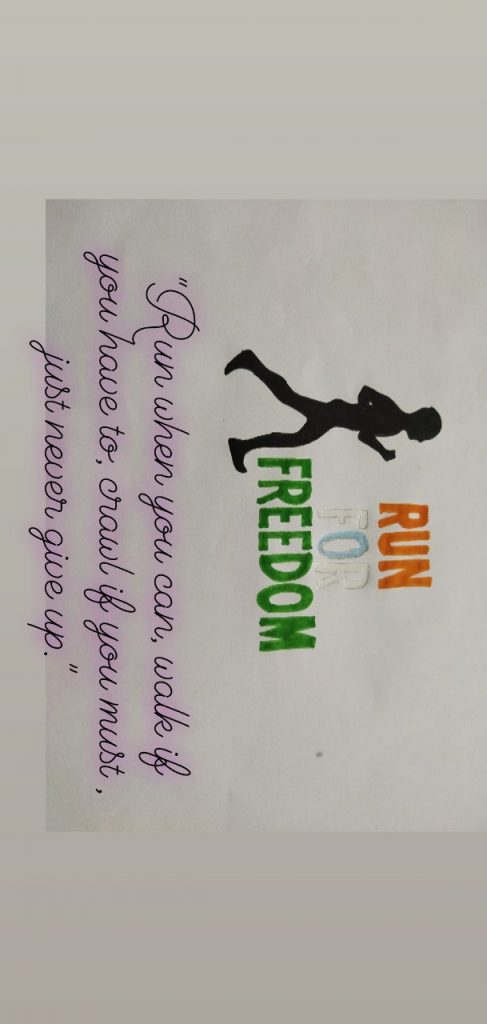 RUN
FOR
FREEDOM
"Run when you can, walk if
you have to, crawl if you must,
just never give up."